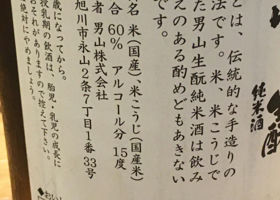 純米酒
とは、伝統的な手造りの
法です。米、米こうじで
た男山生酛純米酒は飲み
えのある酌めどもあきない
名 米(国産)、米こうじ(国産米)
合 60% アルコール分 15度
者 男山株式会社
旭川市永山2条7丁目1番33号
歳になってから。
授乳期の飲酒は、胎児・乳児の成長に
おそれがありますので控えて下さい。
絶対にやめましょう。